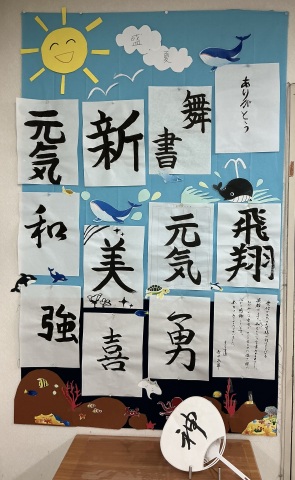 盛夏
元気
新
舞
書
ありがとう
和
美
元気
飛翔
強
喜
勇
神